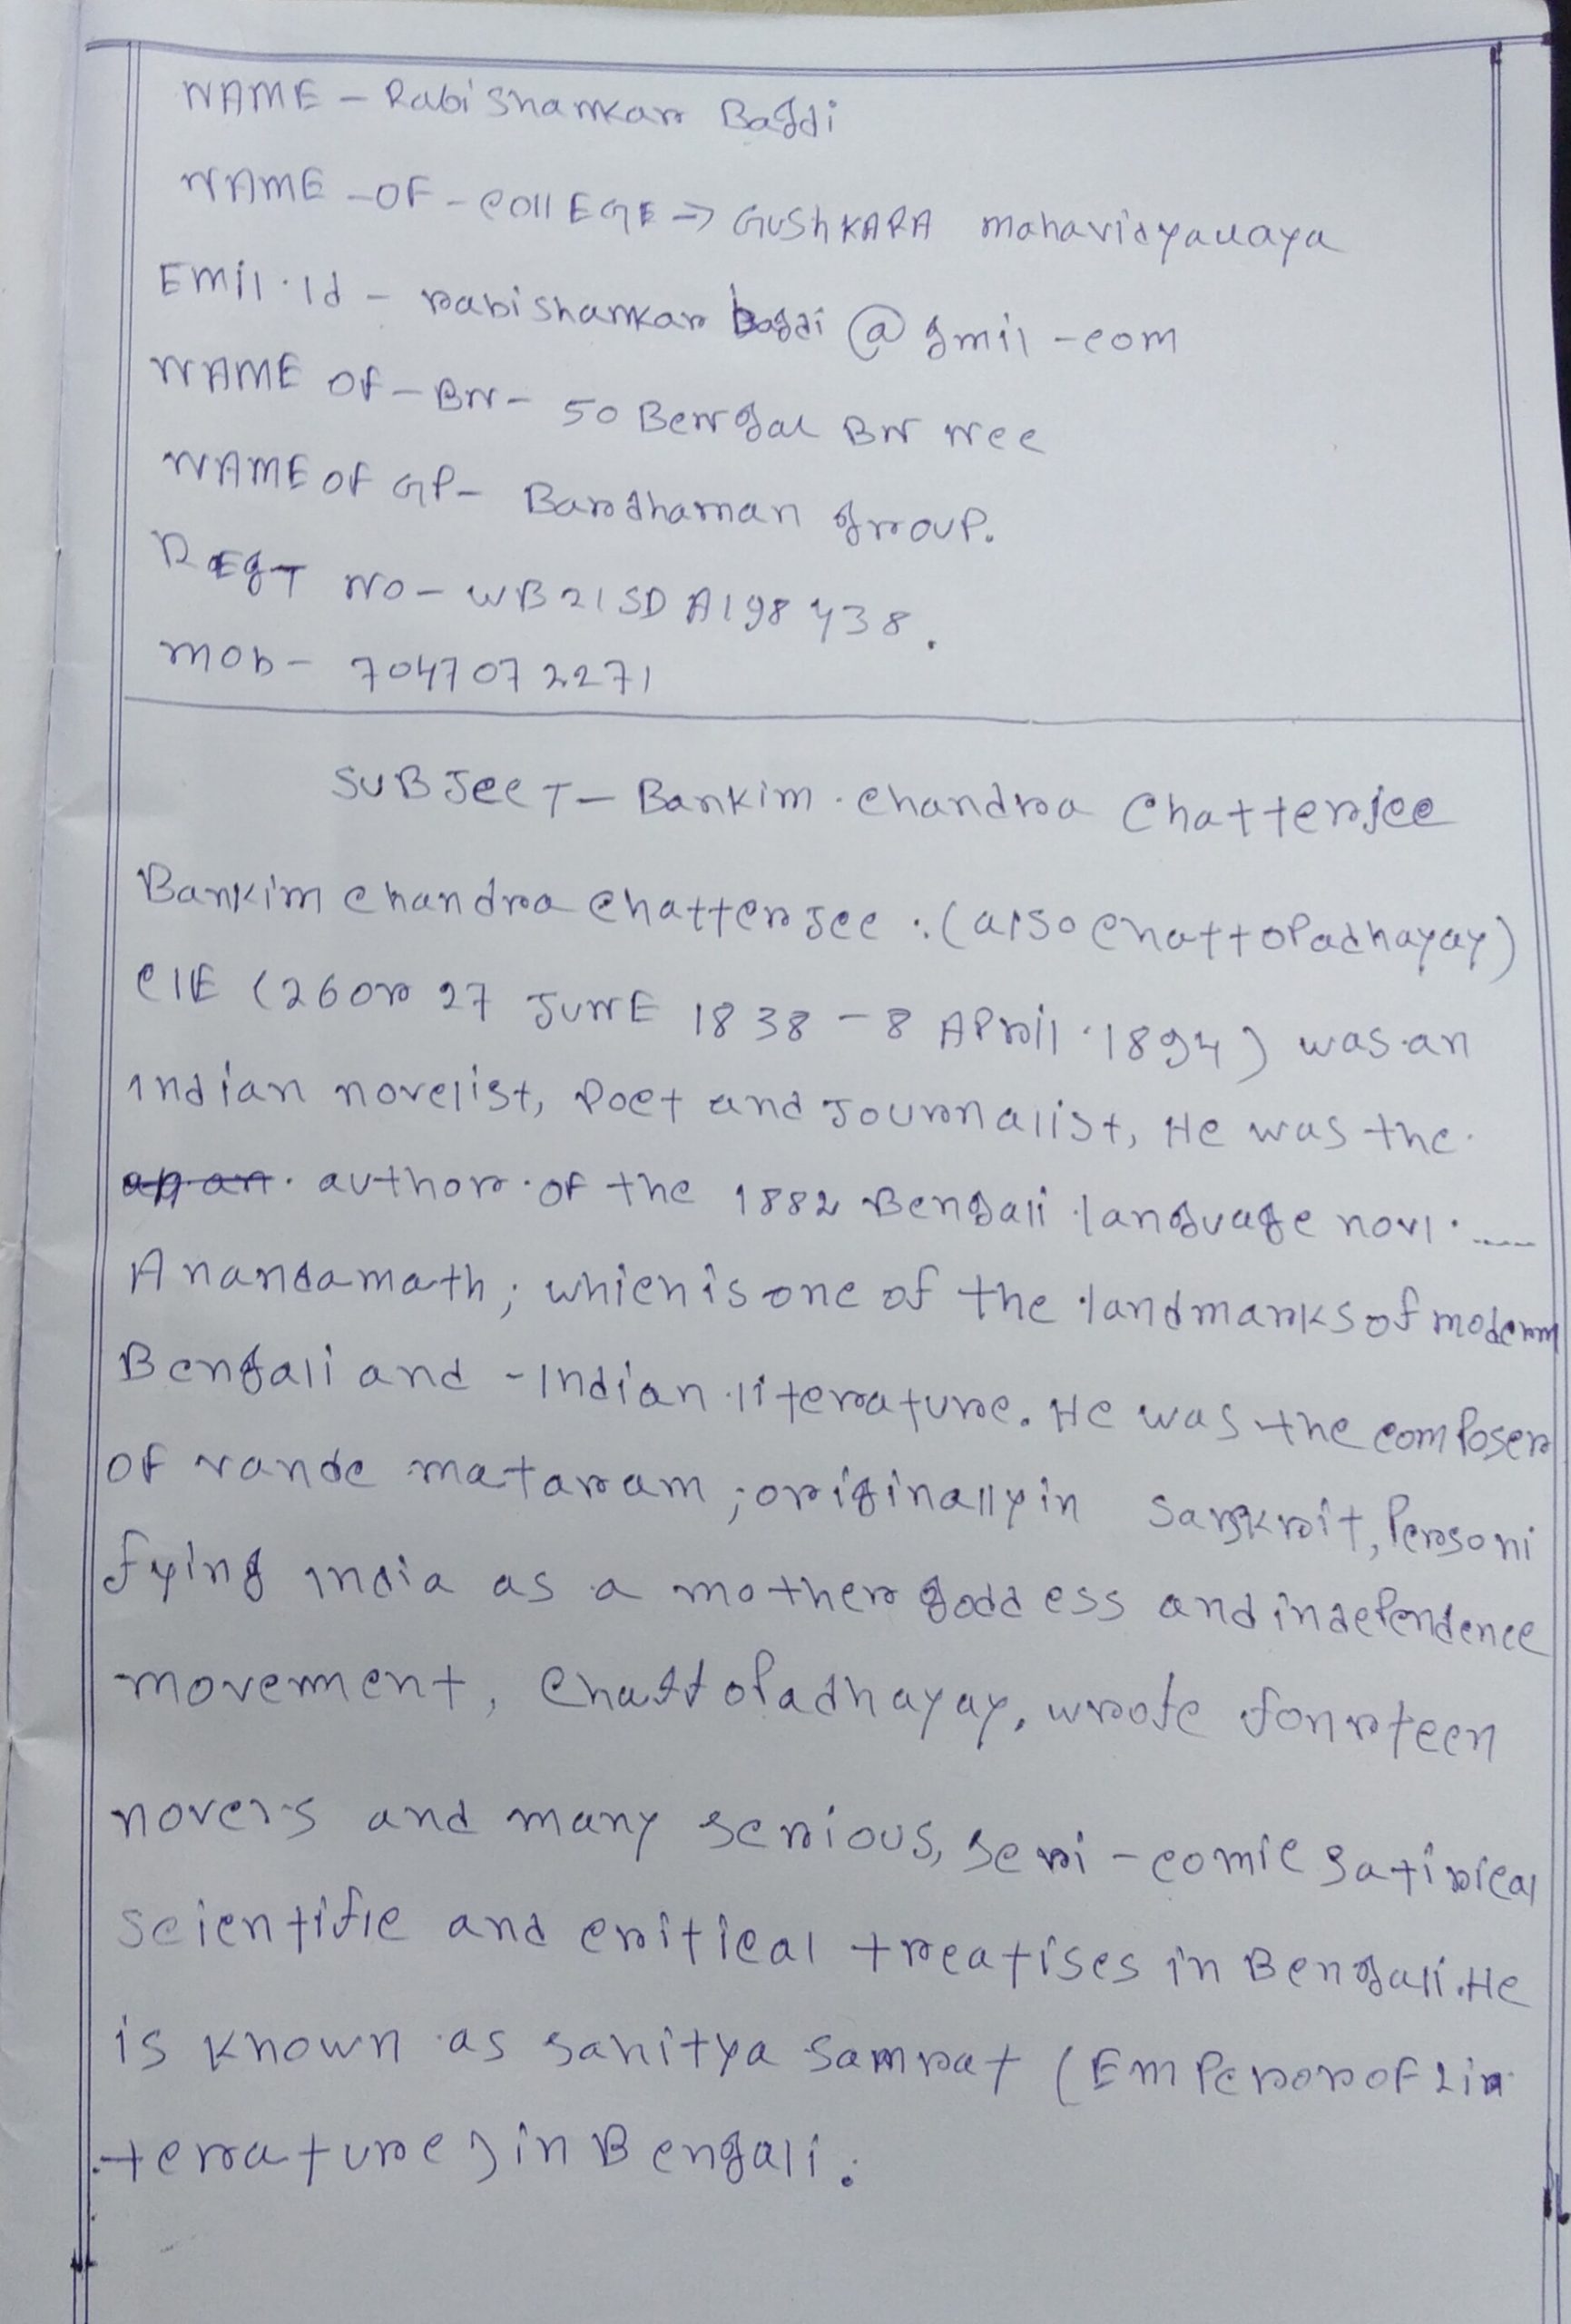 NAME - Rabi Shankar Bagdi
NAME - OF - COllEGE → GUShKARA mahavidyalaya
Emil.Id - rabishankar bagdi @ gmil - com
NAME OF - BN - 50 Bengal BN Ncc
NAME OF GP - Bardhaman group.
REgT NO - WB21SDA198438.
mob - 7047072271
SUBJecT - Bankim . chandra Chatterjee
Bankim chandra chatterjee : (also chattopadhayay)
CIE (26 or 27 JUNE 1838 - 8 April 1894) was an
Indian novelist, Poet and Journalist, He was the
author of the 1882 Bengali language novl
Anandamath; which is one of the landmarks of modern
Bengali and - Indian literature. He was the composer
of vande mataram; originally in Sanskrit, Personi
fying india as a mother goddess and independence
movement, Chattopadhayay, wrote fonrteen
novels and many serious, seri - comic satirical
scientific and critical treatises in Bengali. He
is known as sahitya samrat (Emperor of Lit
terature) in Bengali.